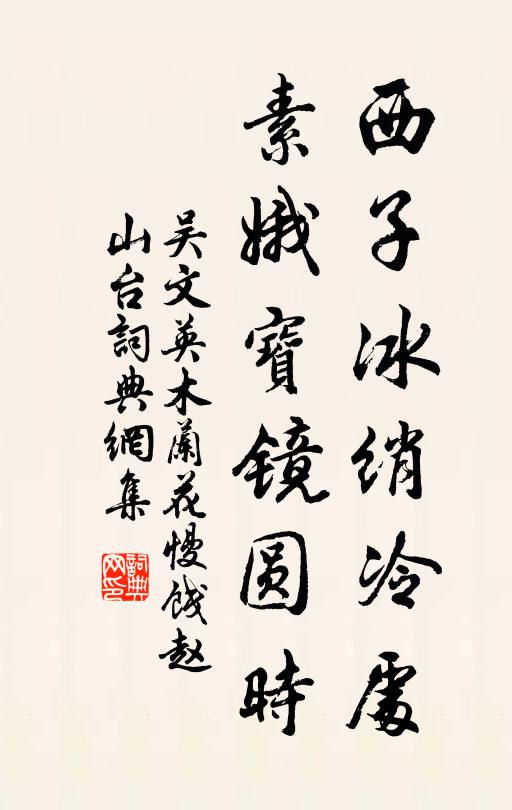 西子冰绡冷處
素娥寶镜圆時
吴文英木蘭花慢餞赵
山台詞典網集
詞典
网印